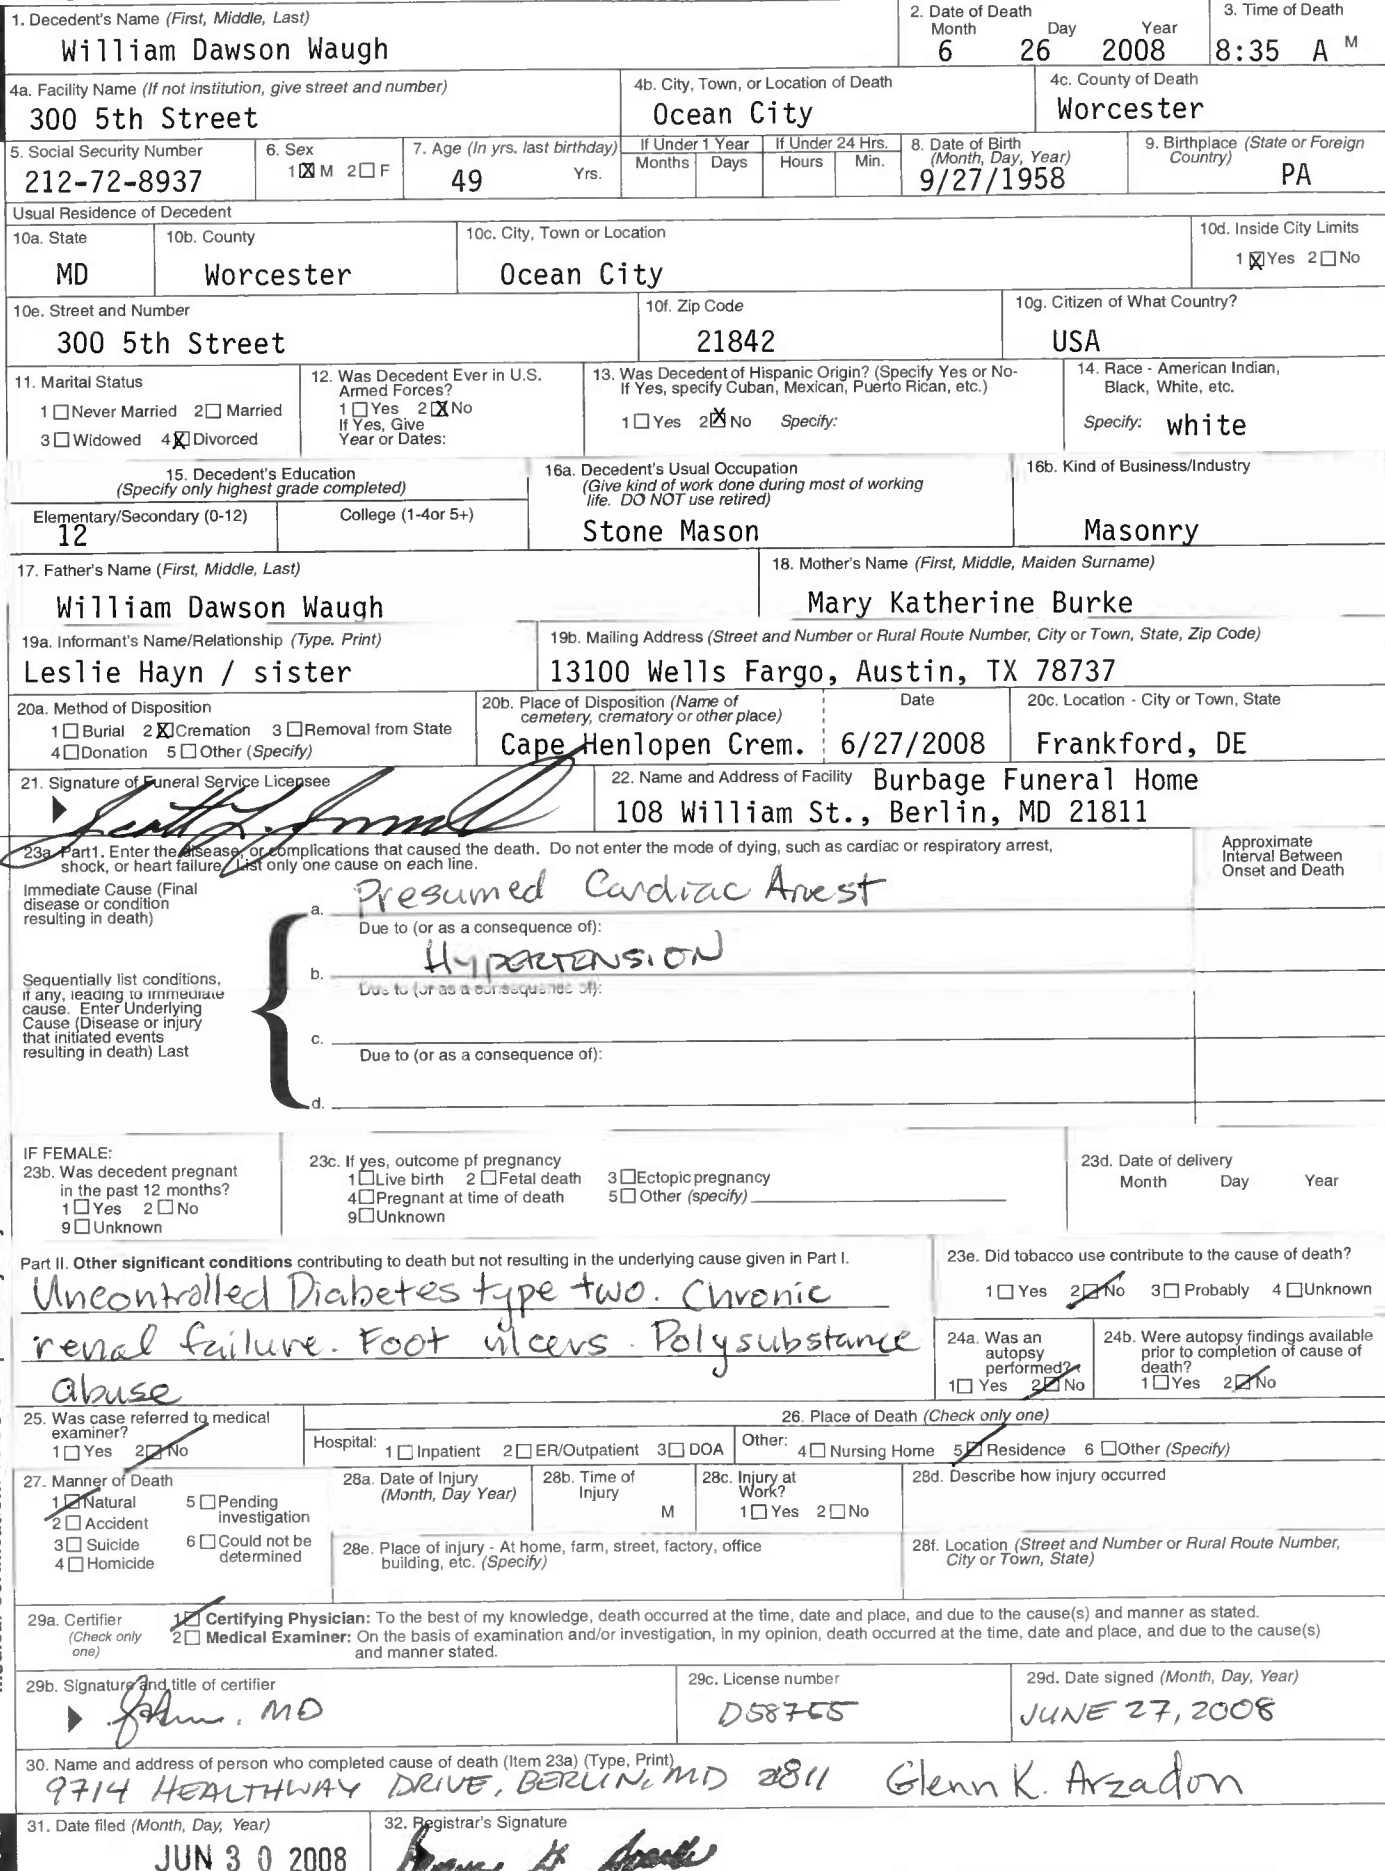 1. Decedent's Name (First, Middle, Last)
William Dawson Waugh
2. Date of Death
Month Day Year
6 26 2008
3. Time of Death
8:35 A M
4a. Facility Name (If not institution, give street and number)
300 5th Street
4b. City, Town, or Location of Death
Ocean City
4c. County of Death
Worcester
5. Social Security Number
212-72-8937
6. Sex
1 ☒ M 2 ☐ F
7. Age (In yrs. last birthday)
49 Yrs.
If Under 1 Year
Months Days
If Under 24 Hrs.
Hours Min.
8. Date of Birth
(Month, Day, Year)
9/27/1958
9. Birthplace (State or Foreign
Country)
PA
Usual Residence of Decedent
10a. State
MD
10b. County
Worcester
10c. City, Town or Location
Ocean City
10d. Inside City Limits
1 ☒ Yes 2 ☐ No
10e. Street and Number
300 5th Street
10f. Zip Code
21842
10g. Citizen of What Country?
USA
11. Marital Status
1 ☐ Never Married 2 ☐ Married
3 ☐ Widowed 4 ☒ Divorced
12. Was Decedent Ever in U.S.
Armed Forces?
1 ☐ Yes 2 ☒ No
If Yes, Give
Year or Dates:
13. Was Decedent of Hispanic Origin? (Specify Yes or No-
If Yes, specify Cuban, Mexican, Puerto Rican, etc.)
1 ☐ Yes 2 ☒ No Specify:
14. Race - American Indian,
Black, White, etc.
Specify: white
15. Decedent's Education
(Specify only highest grade completed)
Elementary/Secondary (0-12)
12
College (1-4or 5+)
16a. Decedent's Usual Occupation
(Give kind of work done during most of working
life. DO NOT use retired)
Stone Mason
16b. Kind of Business/Industry
Masonry
17. Father's Name (First, Middle, Last)
William Dawson Waugh
18. Mother's Name (First, Middle, Maiden Surname)
Mary Katherine Burke
19a. Informant's Name/Relationship (Type. Print)
Leslie Hayn / sister
19b. Mailing Address (Street and Number or Rural Route Number, City or Town, State, Zip Code)
13100 Wells Fargo, Austin, TX 78737
20a. Method of Disposition
1 ☐ Burial 2 ☒ Cremation 3 ☐ Removal from State
4 ☐ Donation 5 ☐ Other (Specify)
20b. Place of Disposition (Name of
cemetery, crematory or other place)
Cape Henlopen Crem.
Date
6/27/2008
20c. Location - City or Town, State
Frankford, DE
21. Signature of Funeral Service Licensee
22. Name and Address of Facility Burbage Funeral Home
108 William St., Berlin, MD 21811
23a. Part1. Enter the disease, or complications that caused the death. Do not enter the mode of dying, such as cardiac or respiratory arrest,
shock, or heart failure. List only one cause on each line.
Approximate
Interval Between
Onset and Death
Immediate Cause (Final
disease or condition
resulting in death)
a. Presumed Cardiac Arrest
Due to (or as a consequence of):
b. HYPERTENSION
Due to (or as a consequence of):
Sequentially list conditions,
if any, leading to immediate
cause. Enter Underlying
Cause (Disease or injury
that initiated events
resulting in death) Last
c.
Due to (or as a consequence of):
d.
IF FEMALE:
23b. Was decedent pregnant
in the past 12 months?
1 ☐ Yes 2 ☐ No
9 ☐ Unknown
23c. If yes, outcome pf pregnancy
1 ☐ Live birth 2 ☐ Fetal death 3 ☐ Ectopic pregnancy
4 ☐ Pregnant at time of death 5 ☐ Other (specify)
9 ☐ Unknown
23d. Date of delivery
Month Day Year
Part II. Other significant conditions contributing to death but not resulting in the underlying cause given in Part I.
Uncontrolled Diabetes type two. Chronic
renal failure. Foot ulcers. Polysubstance
abuse
23e. Did tobacco use contribute to the cause of death?
1 ☐ Yes 2 ☒ No 3 ☐ Probably 4 ☐ Unknown
24a. Was an
autopsy
performed?
1 ☐ Yes 2 ☒ No
24b. Were autopsy findings available
prior to completion of cause of
death?
1 ☐ Yes 2 ☒ No
25. Was case referred to medical
examiner?
1 ☐ Yes 2 ☒ No
26. Place of Death (Check only one)
Hospital: 1 ☐ Inpatient 2 ☐ ER/Outpatient 3 ☐ DOA Other: 4 ☐ Nursing Home 5 ☒ Residence 6 ☐ Other (Specify)
27. Manner of Death
1 ☒ Natural 5 ☐ Pending
investigation
2 ☐ Accident
3 ☐ Suicide 6 ☐ Could not be
determined
4 ☐ Homicide
28a. Date of Injury
(Month, Day Year)
28b. Time of
Injury
M
28c. Injury at
Work?
1 ☐ Yes 2 ☐ No
28d. Describe how injury occurred
28e. Place of injury - At home, farm, street, factory, office
building, etc. (Specify)
28f. Location (Street and Number or Rural Route Number,
City or Town, State)
29a. Certifier
(Check only
one)
1 ☒ Certifying Physician: To the best of my knowledge, death occurred at the time, date and place, and due to the cause(s) and manner as stated.
2 ☐ Medical Examiner: On the basis of examination and/or investigation, in my opinion, death occurred at the time, date and place, and due to the cause(s)
and manner stated.
29b. Signature and title of certifier
MD
29c. License number
D58755
29d. Date signed (Month, Day, Year)
JUNE 27, 2008
30. Name and address of person who completed cause of death (Item 23a) (Type, Print)
9714 HEALTHWAY DRIVE, BERLIN, MD 21811 Glenn K. Arzadon
31. Date filed (Month, Day, Year)
JUN 3 0 2008
32. Registrar's Signature